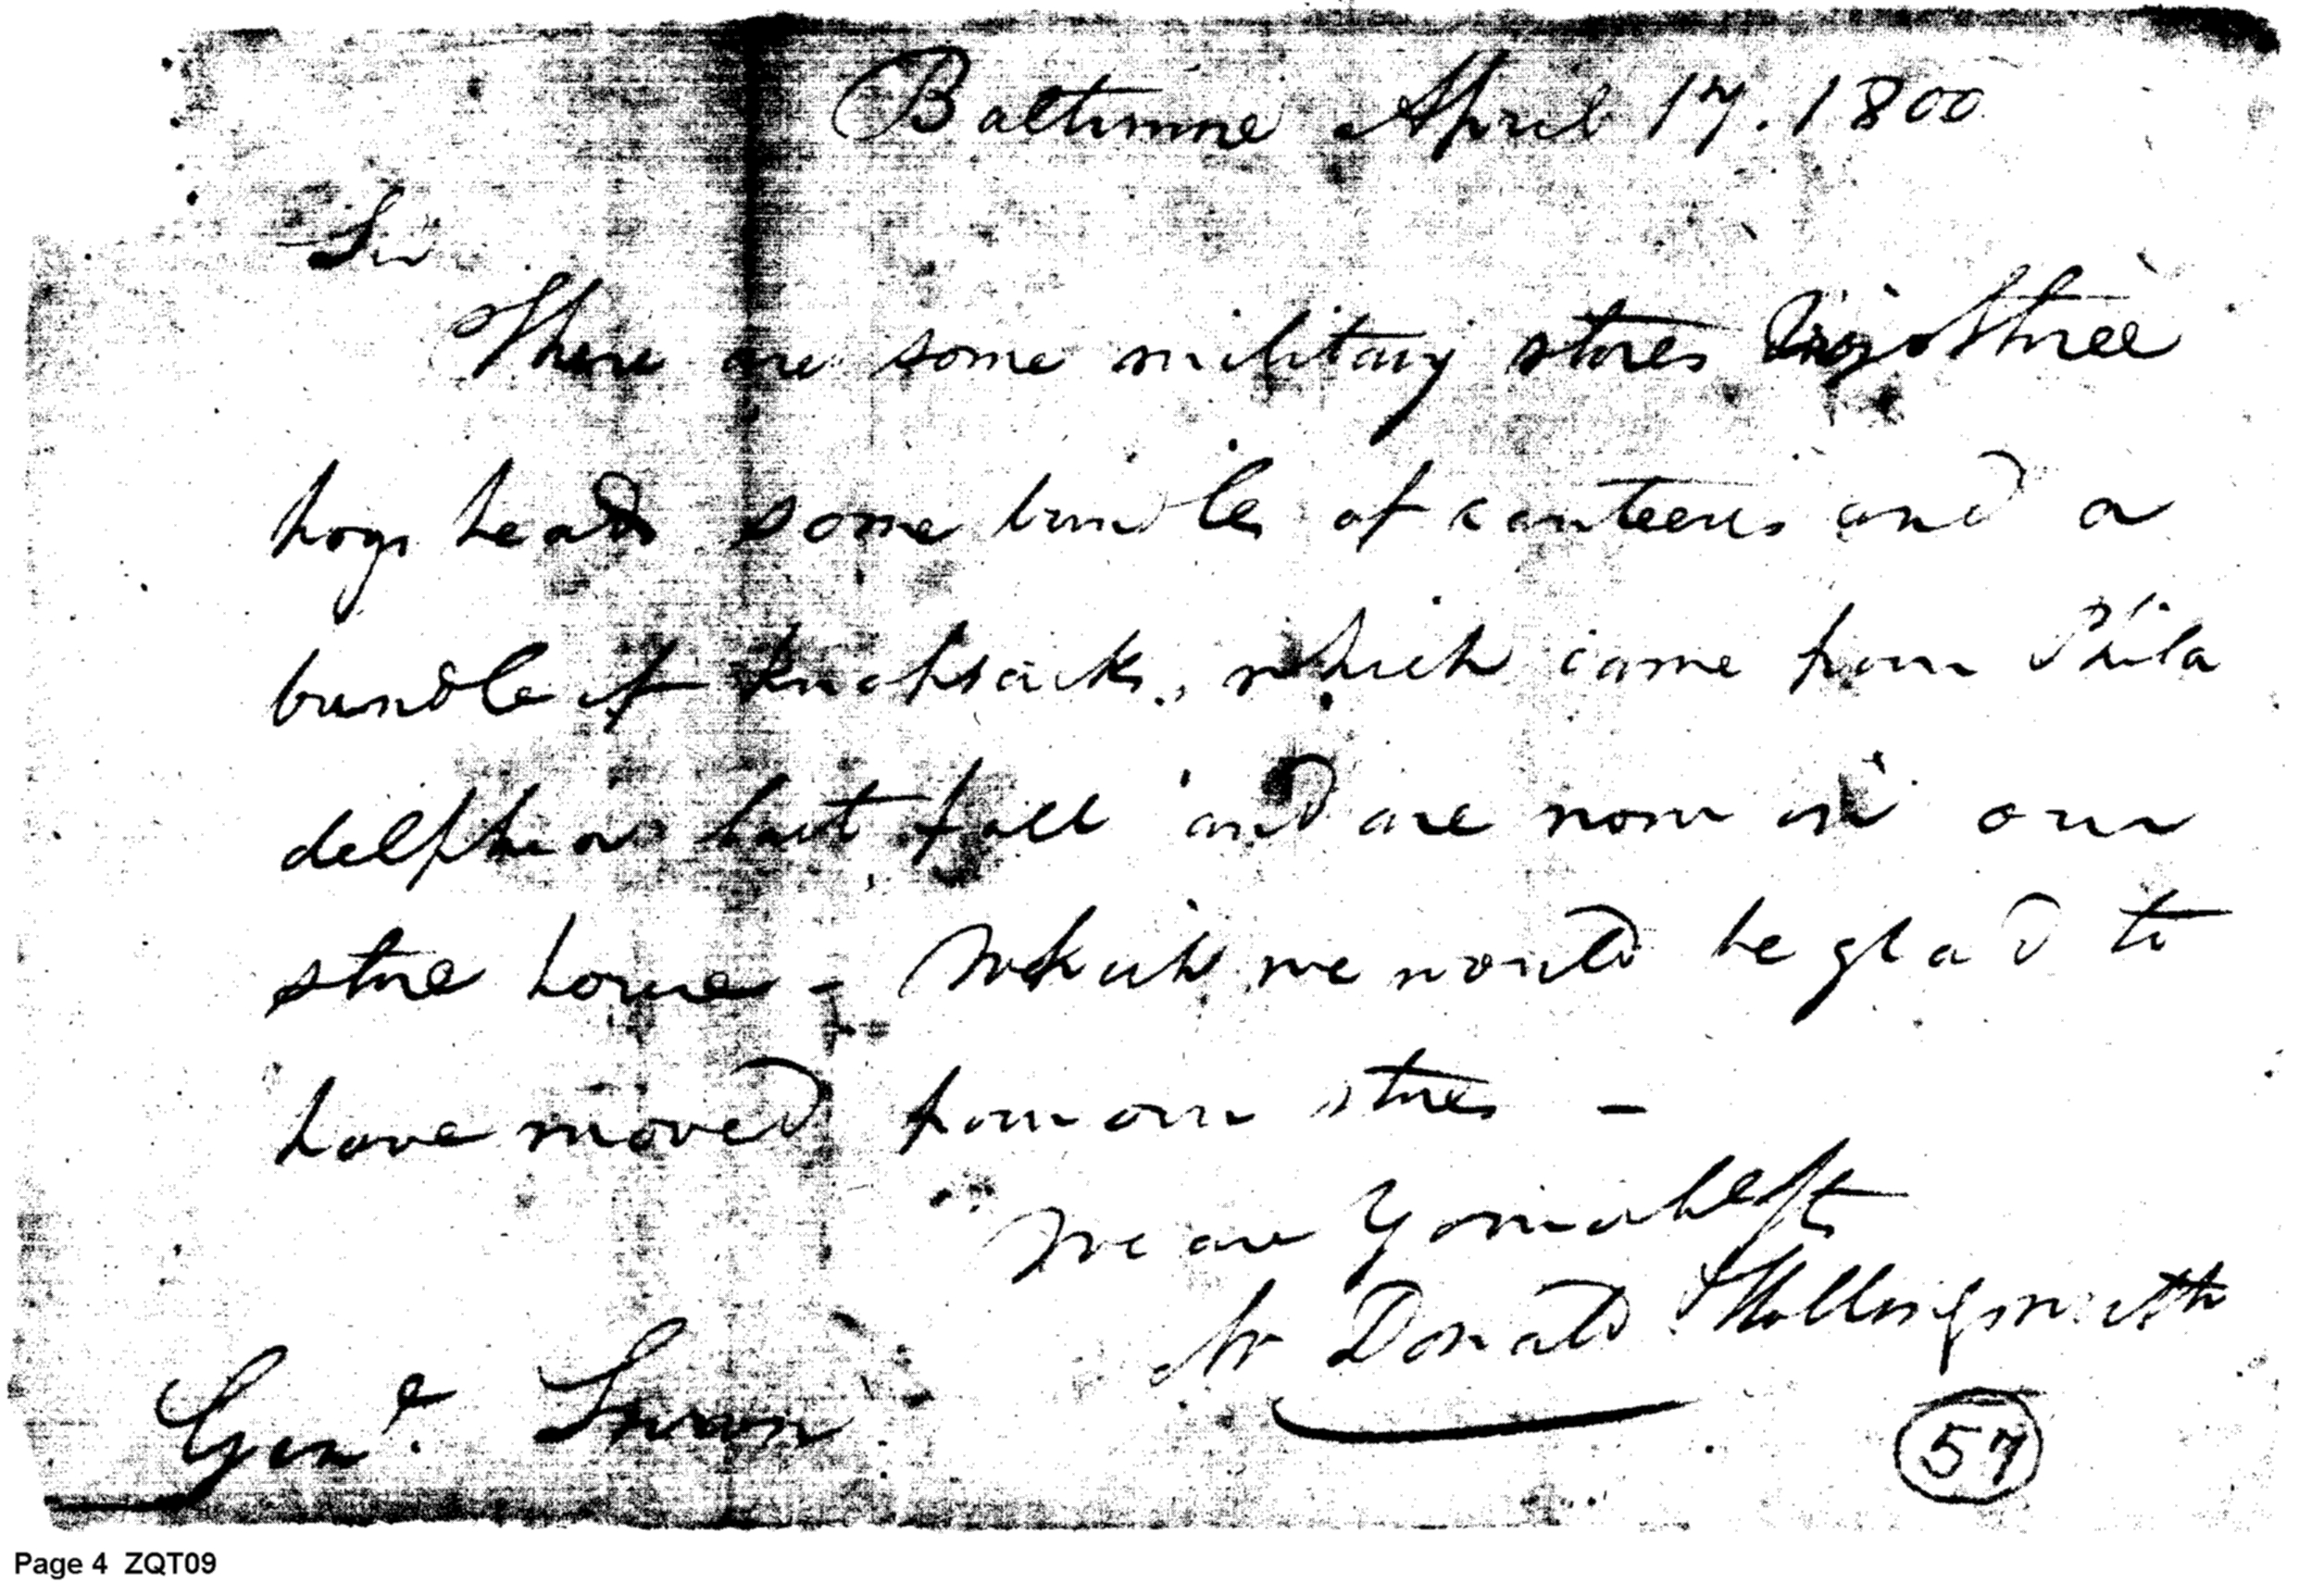 Baltimore April 17. 1800
Sir
There are some military stores three
hogs heads some bundles of canteens and a
bundle of knapsacks, which came from Phila
delphia last fall and are now in our
store house - Which we would be glad to
have moved from our stores -
We are
Donald Hollingsworth
Gen.l Swan
57
Page 4 ZQT09